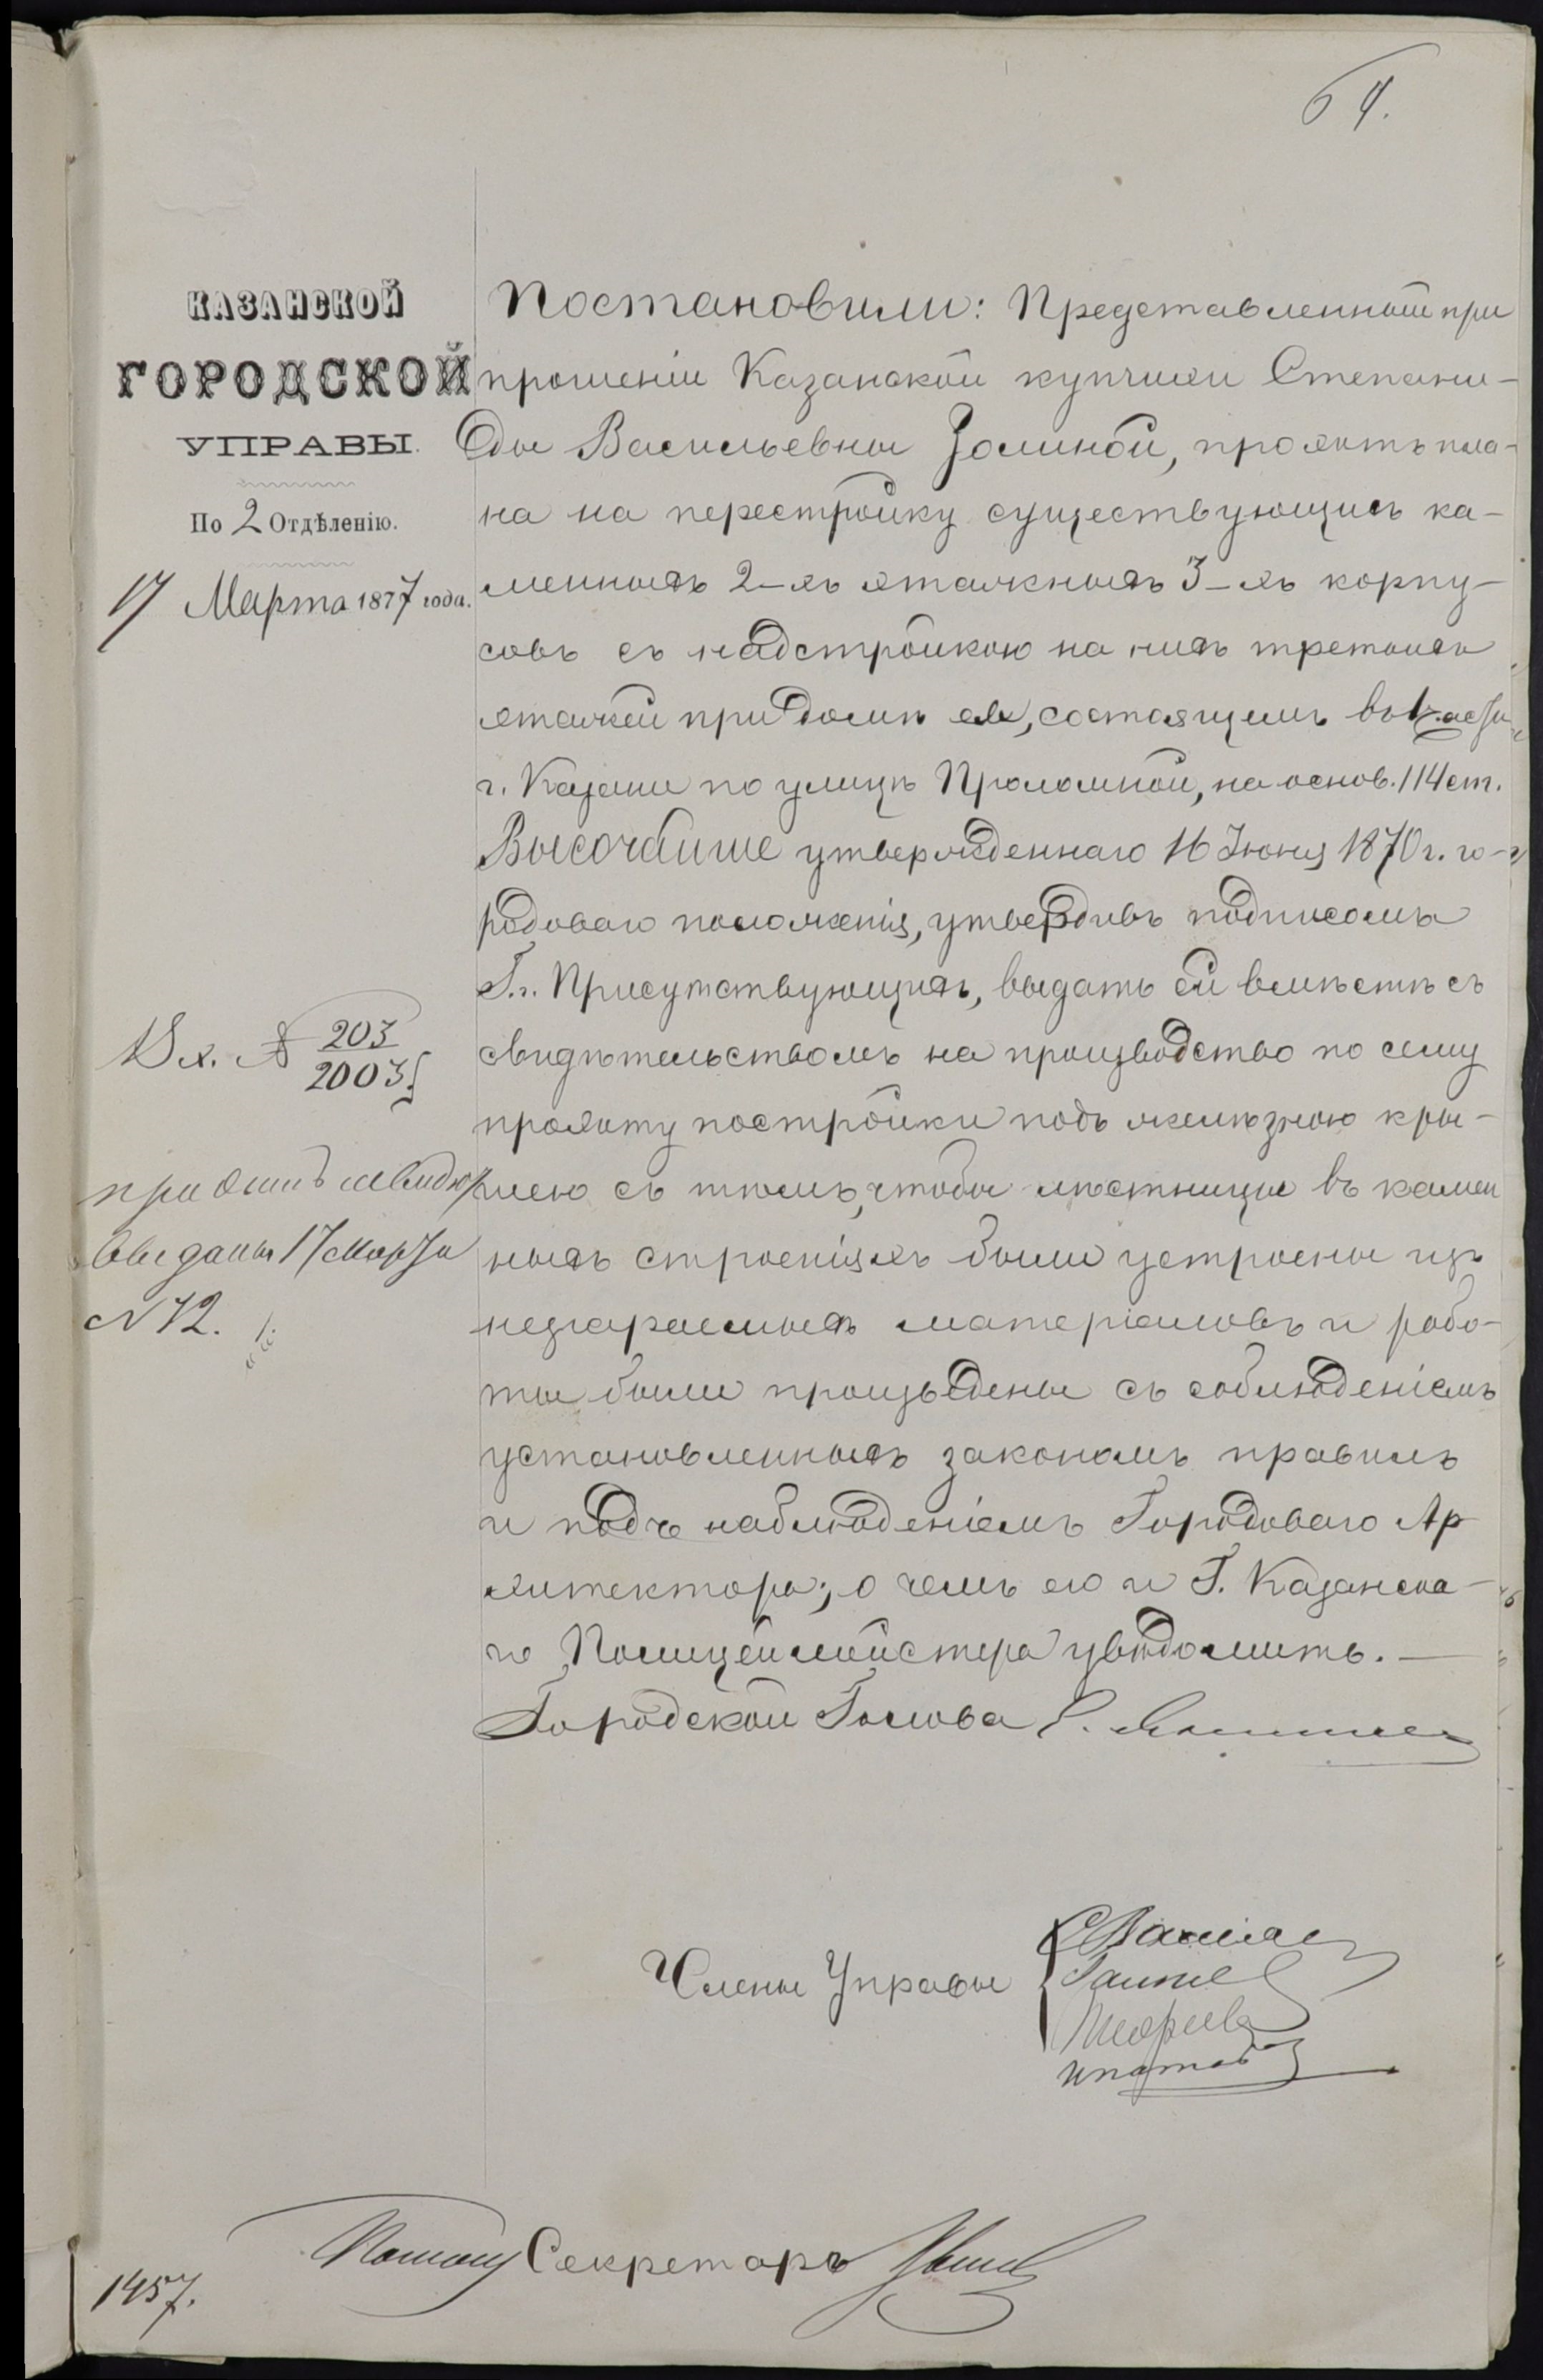 КАЗАНСКОЙ
ГОРОДСКОЙ
УПРАВЫ.
По 2 Отдѣленію.
17 Марта 1877 года.
Вх. № 203
2003
выданы 17 Марта
№ 72.
Постановили: Представленный при
прошеніи Казанской купчихи Степани-
ды Васильевны Золиной, проэктъ пла-
на на перестройку существующихъ ка-
менныхъ 2-хъ этажныхъ 3-хъ корпу-
совъ съ надстройкою на нихъ третьихъ
этажей при домѣ ея, состоящемъ въ 1 части
г. Казани по улицѣ Проломной, на основ. 114 ст.
Высочайше утвержденнаго 16 Іюня 1870 г. го-
родоваго положенія, утвердивъ подписомъ
Г.г. Присутствующихъ, выдать ей вмѣстѣ съ
свидѣтельствомъ на производство по сему
проэкту постройки подъ желѣзною кры-
шею съ тѣмъ, чтобы лѣстницы въ камен
ныхъ строеніяхъ были устроены изъ
незгараемыхъ матеріаловъ и рабо-
ты были произведены съ соблюденіемъ
установленныхъ закономъ правилъ
и подъ наблюденіемъ Городоваго Ар
хитектора; о чемъ его и Г. Казанска-
го Полицеймейстера увѣдомить.
Городской Голова
Члены Управы
Ипатов
Секретарь
1457.